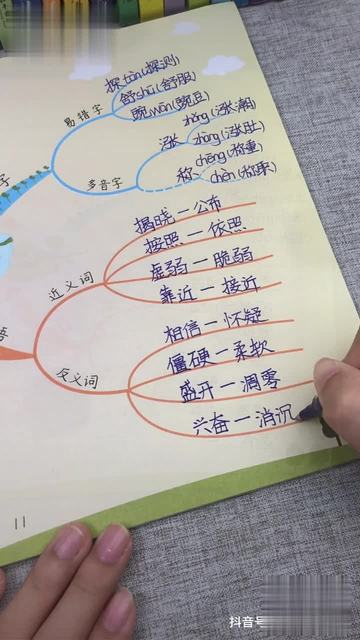 探tàn(探测)
舒shū(舒服)
豌wān(豌豆)
易错字
字
zhǎng(涨潮)
涨
zhàng(涨肚)
chēng(称重)
称
chèn(称职)
多音字
揭晓一公布
按照一依照
近义词
虚弱一脆弱
靠近一接近
语
相信一怀疑
僵硬一柔软
反义词
盛开一凋零
兴奋一消沉
11
抖音号